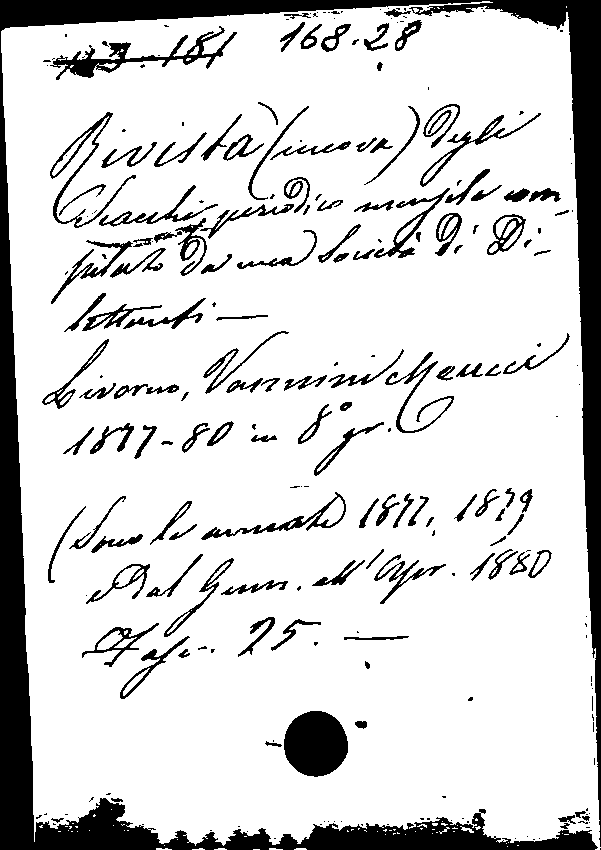 113.181 168.28
Rivista (nuova) degli
Scacchi, periodico mensile com-
pilato da una Società di Di-
lettanti —
Livorno, Vannini Meucci
1877-80 in 8° gr.
(Sono le annate 1877, 1879
e dal Genn. all'Apr. 1880
Fasc. 25. —